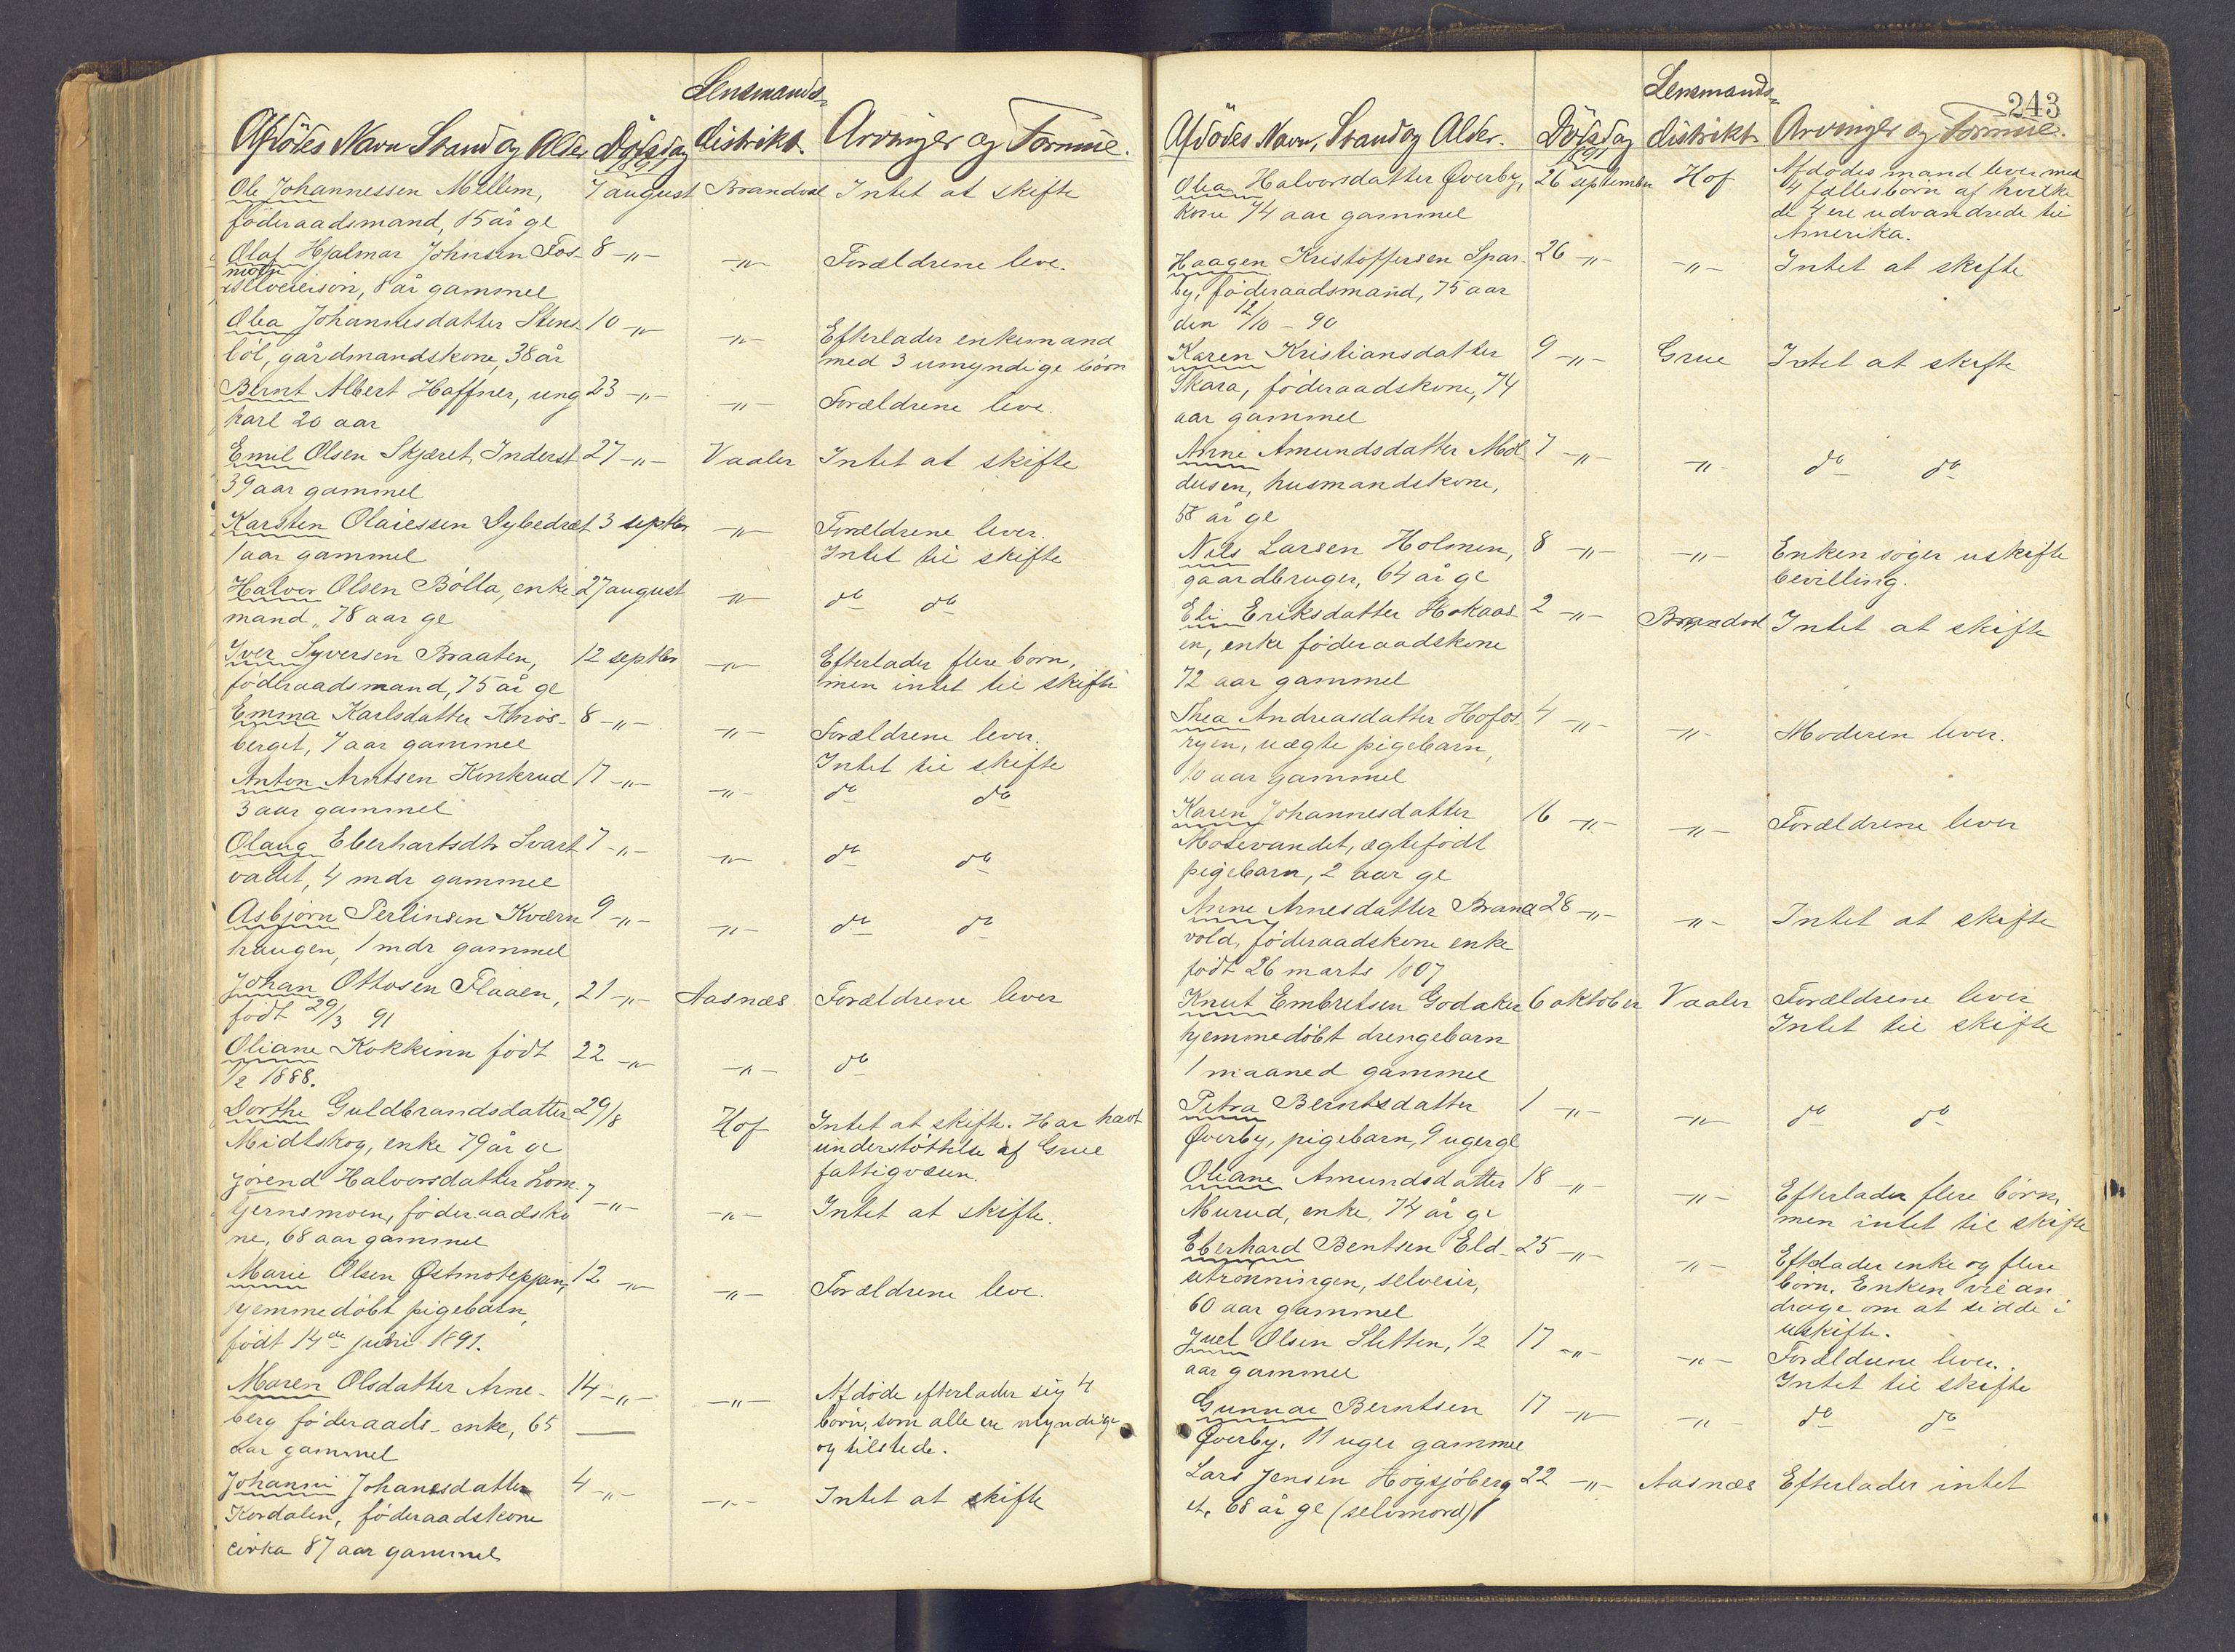 Lensmands-
Afdödes Navn Stand og Alder Dödsdag distrikt. Arvinger og Formue.
1891
Ole Johannessen Mellem, 7 august Brandval Intet at skifte
föderaadsmand, 85 år gl
Olaf Hjalmar Johnsen Fos- 8 -"- -"- Forældrene leve.
mo
selveiersön, 8 år gammel
Olea Johannesdatter Stens- 10 -"- -"- Efterlader enkemand
böl, gårdmandskone, 38 år med 3 umyndige börn
Bernt Albert Haffner, ung 23 -"- -"- Forældrene leve.
karl 20 aar
Emil Olsen Skjæret, Inderst 27 -"- Vaaler Intet at skifte
39 aar gammel
Karsten Olaiessen Dybedræt 3 septbr -"- Forældrene lever.
1 aar gammel Intet til skifte
Halvor Olsen Bölla, enke 27 august -"- do do
mand, 78 aar gl
Iver Syversen Braaten, 12 septbr -"- Efterlader flere börn,
föderaadsmand, 75 år gl men intet til skifte
Emma Karlsdatter Knös- 8 -"- -"- Forældrene lever.
berget, 7 aar gammel Intet til skifte
Anton Arntsen Konkrud 17 -"- -"- do do
3 aar gammel
Olaug Eberhartsdtr Svart 7 -"- -"- do do
vadet, 4 mdr gammel
Asbjörn Perlinsen Kværn 9 -"- -"- do do
haugen, 1 mdr gammel
Johan Ottosen Flaaen, 21 -"- Aasnæs Forældrene lever
födt 29/3 91
Oliane Kokkinn födt 22 -"- -"- do
1/2 1888.
Dorthe Guldbrandsdatter 29/8 Hof Intet at skifte. Har havt
Midtskog, enke 79 år gl understöttelse af Grue
fattigvæsen.
Jörend Halvorsdatter Lom- 7 -"- -"- Intet at skifte.
tjernsmoen, föderaadsko
ne, 68 aar gammel
Marie Olsen Østmoteppen, 12 -"- -"- Forældrene leve.
hjemmedöbt pigebarn,
födt 14de juni 1891.
Maren Olsdatter Arne- 14 -"- -"- Afdöde efterlader sig 4
berg föderaads-enke, 65 börn, som alle er myndige
aar gammel og tilstede.
Johanne Johanesdatter 4 -"- -"- Intet at skifte
Kordalen, föderaadskone
cirka 87 aar gammel
243
Lensmands-
Afdödes Navn, Stand og Alder. Dödsdag distrikt Arvinger og Formue.
1891
Olea Halvorsdatter Øverby, 26 september Hof Afdödes mand lever med
kone 74 aar gammel 4 fællesbörn af hvilke
de 4 ere udvandrede til
Amerika.
Haagen Kristoffersen Spar- 26 -"- -"- Intet at skifte
by, föderaadsmand, 75 aar
den 12/10 - 90
Karen Kristiansdatter 9 -"- Grue Intet at skifte
Skara, föderaadskone, 74
aar gammel
Anne Amundsdatter Mol- 7 -"- -"- do do
deusen, husmandskone,
58 år gl
Nils Larsen Holmen, 8 -"- -"- Enken söger uskifte
gaardbruger, 64 år gl bevilling.
Eli Eriksdatter Hokaas- 2 -"- Brandvol Intet at skifte
en, enke föderaadskone
72 aar gammel
Thea Andreasdatter Hofos- 4 -"- -"- Moderen lever.
ryen, uægte pigebarn,
10 aar gammel
Karen Johannesdatter 16 -"- -"- Forældrene lever
Mosevandet, ægtefödt
pigebarn, 2 aar gl
Anne Arnesdatter Brand 28 -"- -"- Intet at skifte
vold, föderaadskone enke
födt 26 marts 1807
Knut Embretsen Godaker 6 oktober Vaaler Forældrene lever
hjemmedöbt drengebarn Intet til skifte
1 maaned gammel
Petra Berntsdatter 1 -"- -"- do do
Øverby, pigebarn, 9 uger gl
Oliane Amundsdatter 18 -"- -"- Efterlader flere börn,
Murud, enke, 74 år gl men intet til skifte
Eberhard Bentsen Eld- 25 -"- -"- Efterlader enke og flere
setrönningen, selveier, börn. Enken vil an
60 aar gammel drage om at sidde i
uskifte.
Juel Olsen Sletten, 1/2 17 -"- -"- Forældrene lever.
aar gammel Intet til skifte
Gunnar Berntsen 17 -"- -"- do do
Øverby, 11 uger gammel
Lars Jensen Högsjöberg 22 -"- Aasnæs Efterlader intet
et, 68 år gl (selvmord)